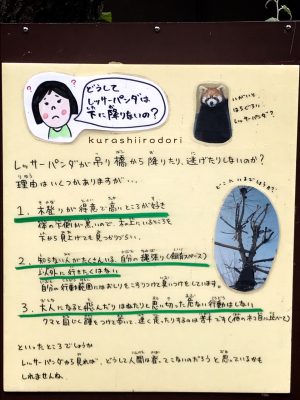 どうして
レッサーパンダは
下に降りないの？
kurashiirodori
レッサーパンダが吊り橋から降りたり、逃げたりしないのか？
理由はいくつかありますが…
どこにいるでしょうか？
1. 木登りが得意で高いところが好き
体の下側が黒いので、木の上にいるところを
下から見上げても見つかりづらい。
2. 知らない人がたくさんいる、自分の縄張り(飼育スペース)
以外に行きたくない
自分の行動範囲にはおしりをこすりつけ臭いつけをしています。
3. 大人になると飛んだりはねたりと思い切った危ない行動はしない
クマと同じく踵をつけて歩いて、速く走ったりするのは苦手です
といったところでしょうか
レッサーパンダから見れば、どうして人間は登ってこないのだろうと思っているかも
しれませんね。